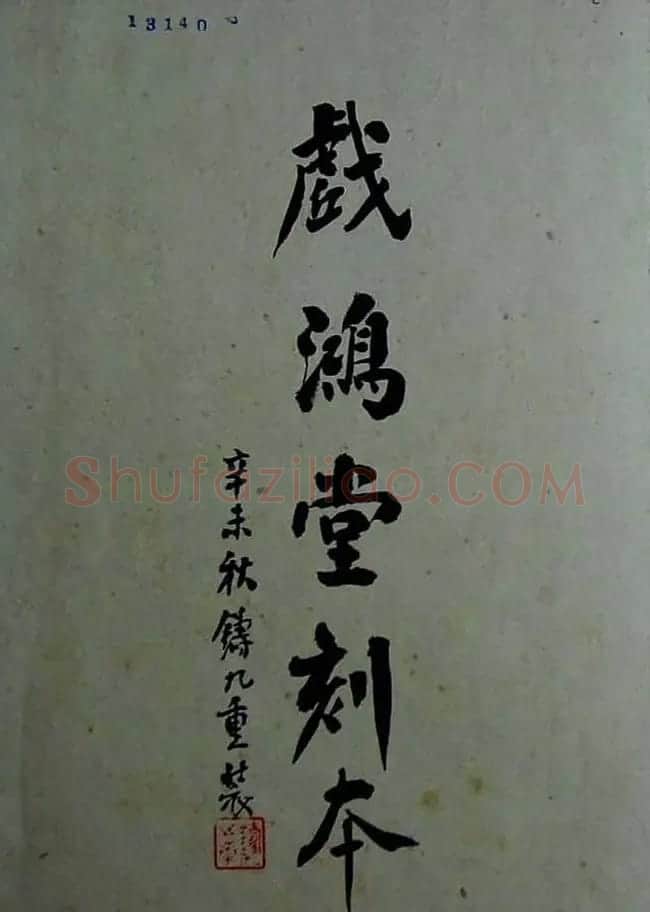 13140
戲鴻堂刻本
辛未秋鑄九重裝
Shufaziliao.COM